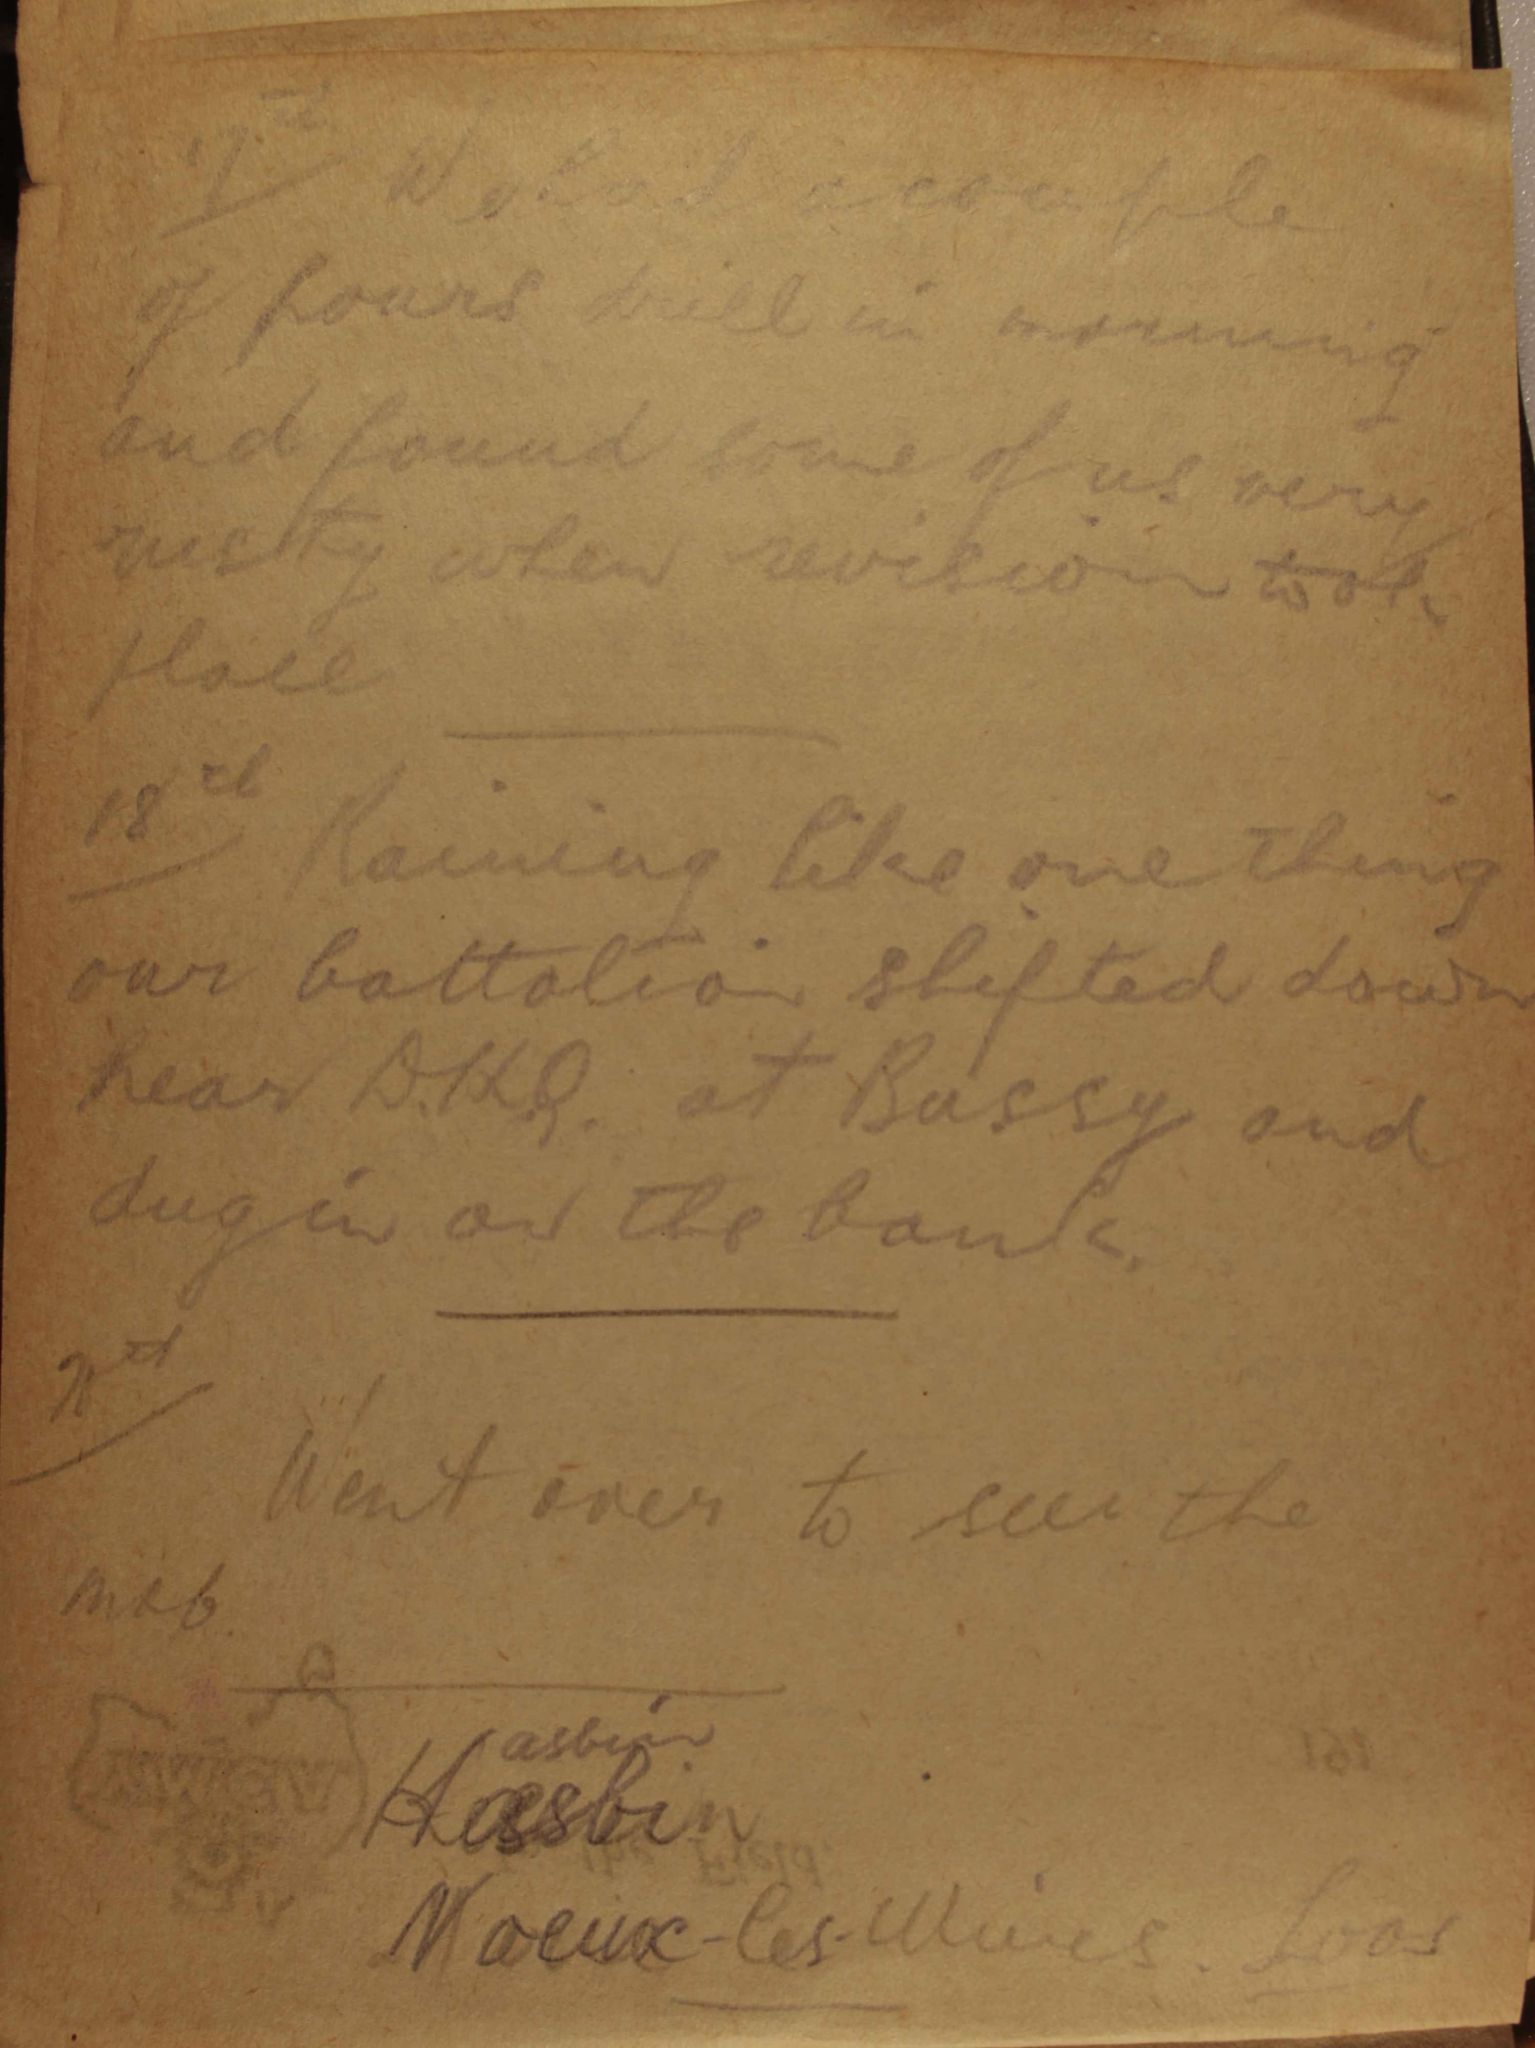 17th We had a couple
of hours drill in morning
and found some of us very
rusty when revision took
place
18th Raining like one thing
our battalion shifted down
near D.H.Q. at Bussy and
dug in on the bank.
Went over to see the
mob.
asbin
Hasbin
Noeux-les-Mines. Loos